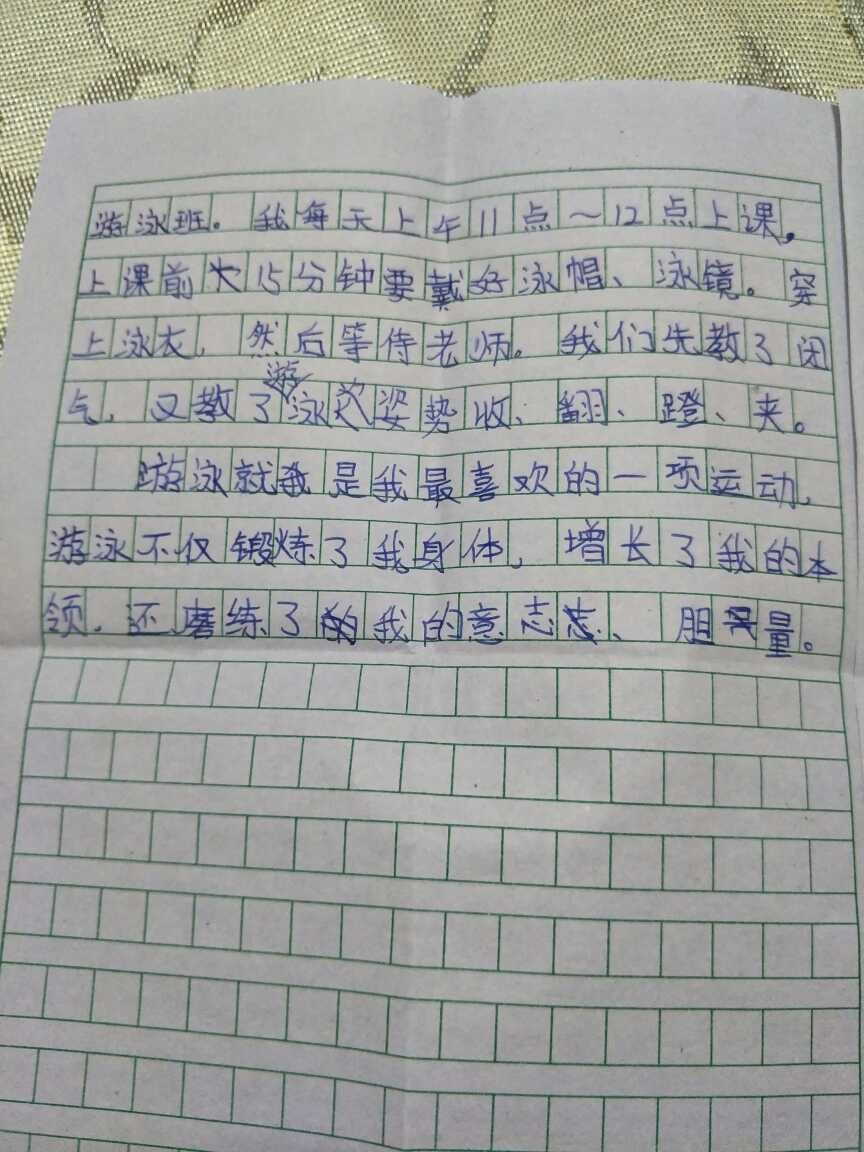 游泳班。我每天上午11点～12点上课。
上课前15分钟要戴好泳帽、泳镜。穿
上泳衣，然后等待老师。我们先教了闭
气，又教了游泳姿势收、翻、蹬、夹。
游泳就是我最喜欢的一项运动，
游泳不仅锻炼了我身体，增长了我的本
领，还磨练了我的意志、胆量。